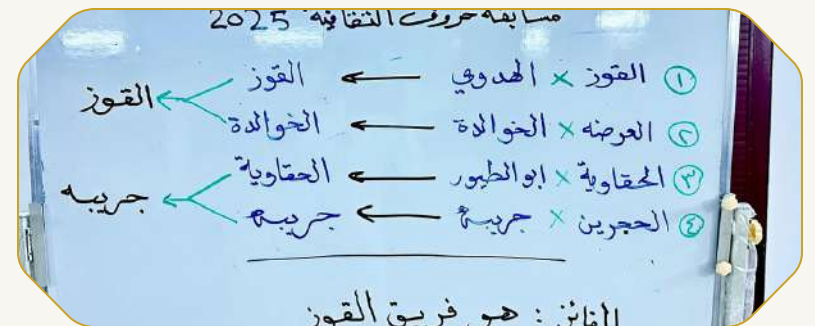 مسابقة حروف الثقافية 2025
١ القوز × الهدوي ← القوز
٢ العرضه × الخوالدة ← الخوالدة
القوز
٣ الحقاوية × ابو الطيور ← الحقاوية
٤ الحجرين × جريبة ← جريبه
جريبه
الفائز : هو فريق القوز